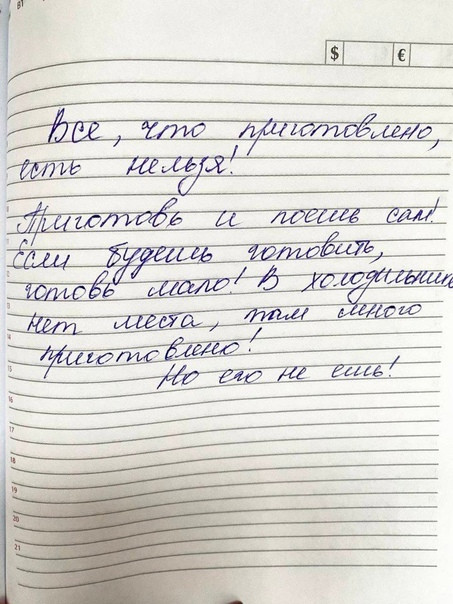 $ €
Все, что приготовлено,
есть нельзя!
Приготовь и поешь сам!
Если будешь готовить,
готовь мало! В холодильнике
нет места, там много
приготовлено!
Но его не ешь!
13
14
15
16
17
18
19
20
21